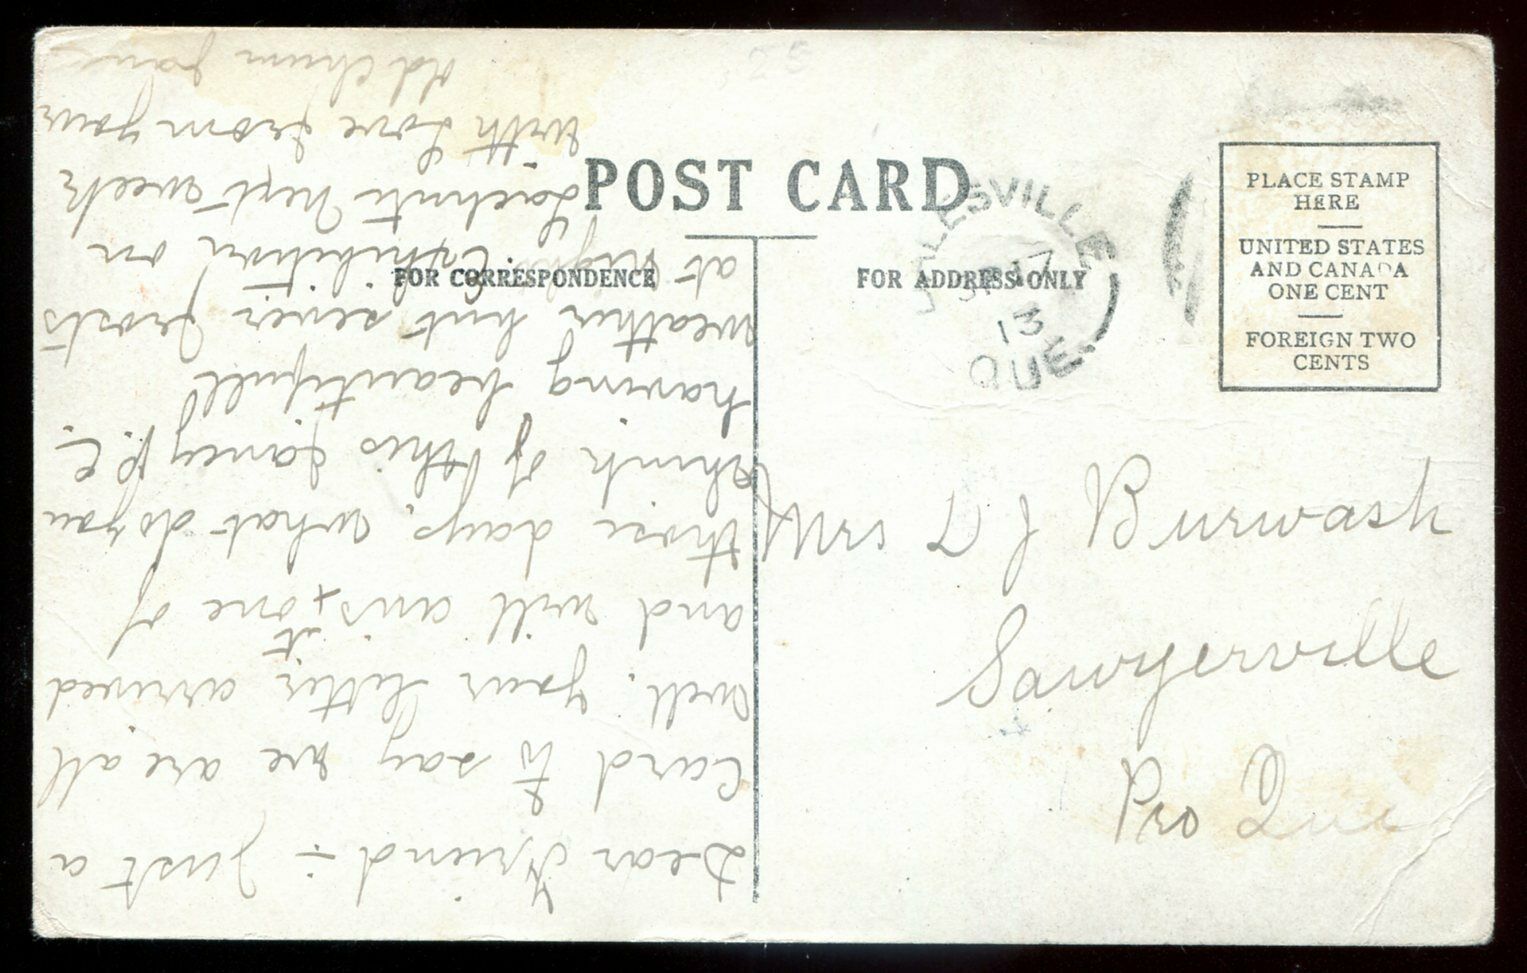 POST CARD
FOR CORRESPONDENCE
FOR ADDRESS ONLY
PLACE STAMP
HERE
UNITED STATES
AND CANADA
ONE CENT
FOREIGN TWO
CENTS
LESVILLE
SP 17
13
QUE.
Mrs D J Burwash
Sawyerville
Pro Que
Dear Friend ÷ Just a
Card to say we are all
well. Your letter arrived
and will ans it + one of
these days. What do you
think of this fancy P.C.
having beautifull
weather but sever frosts
at night. Exhibition on
Lachute next week
with Love from your
old chum
25